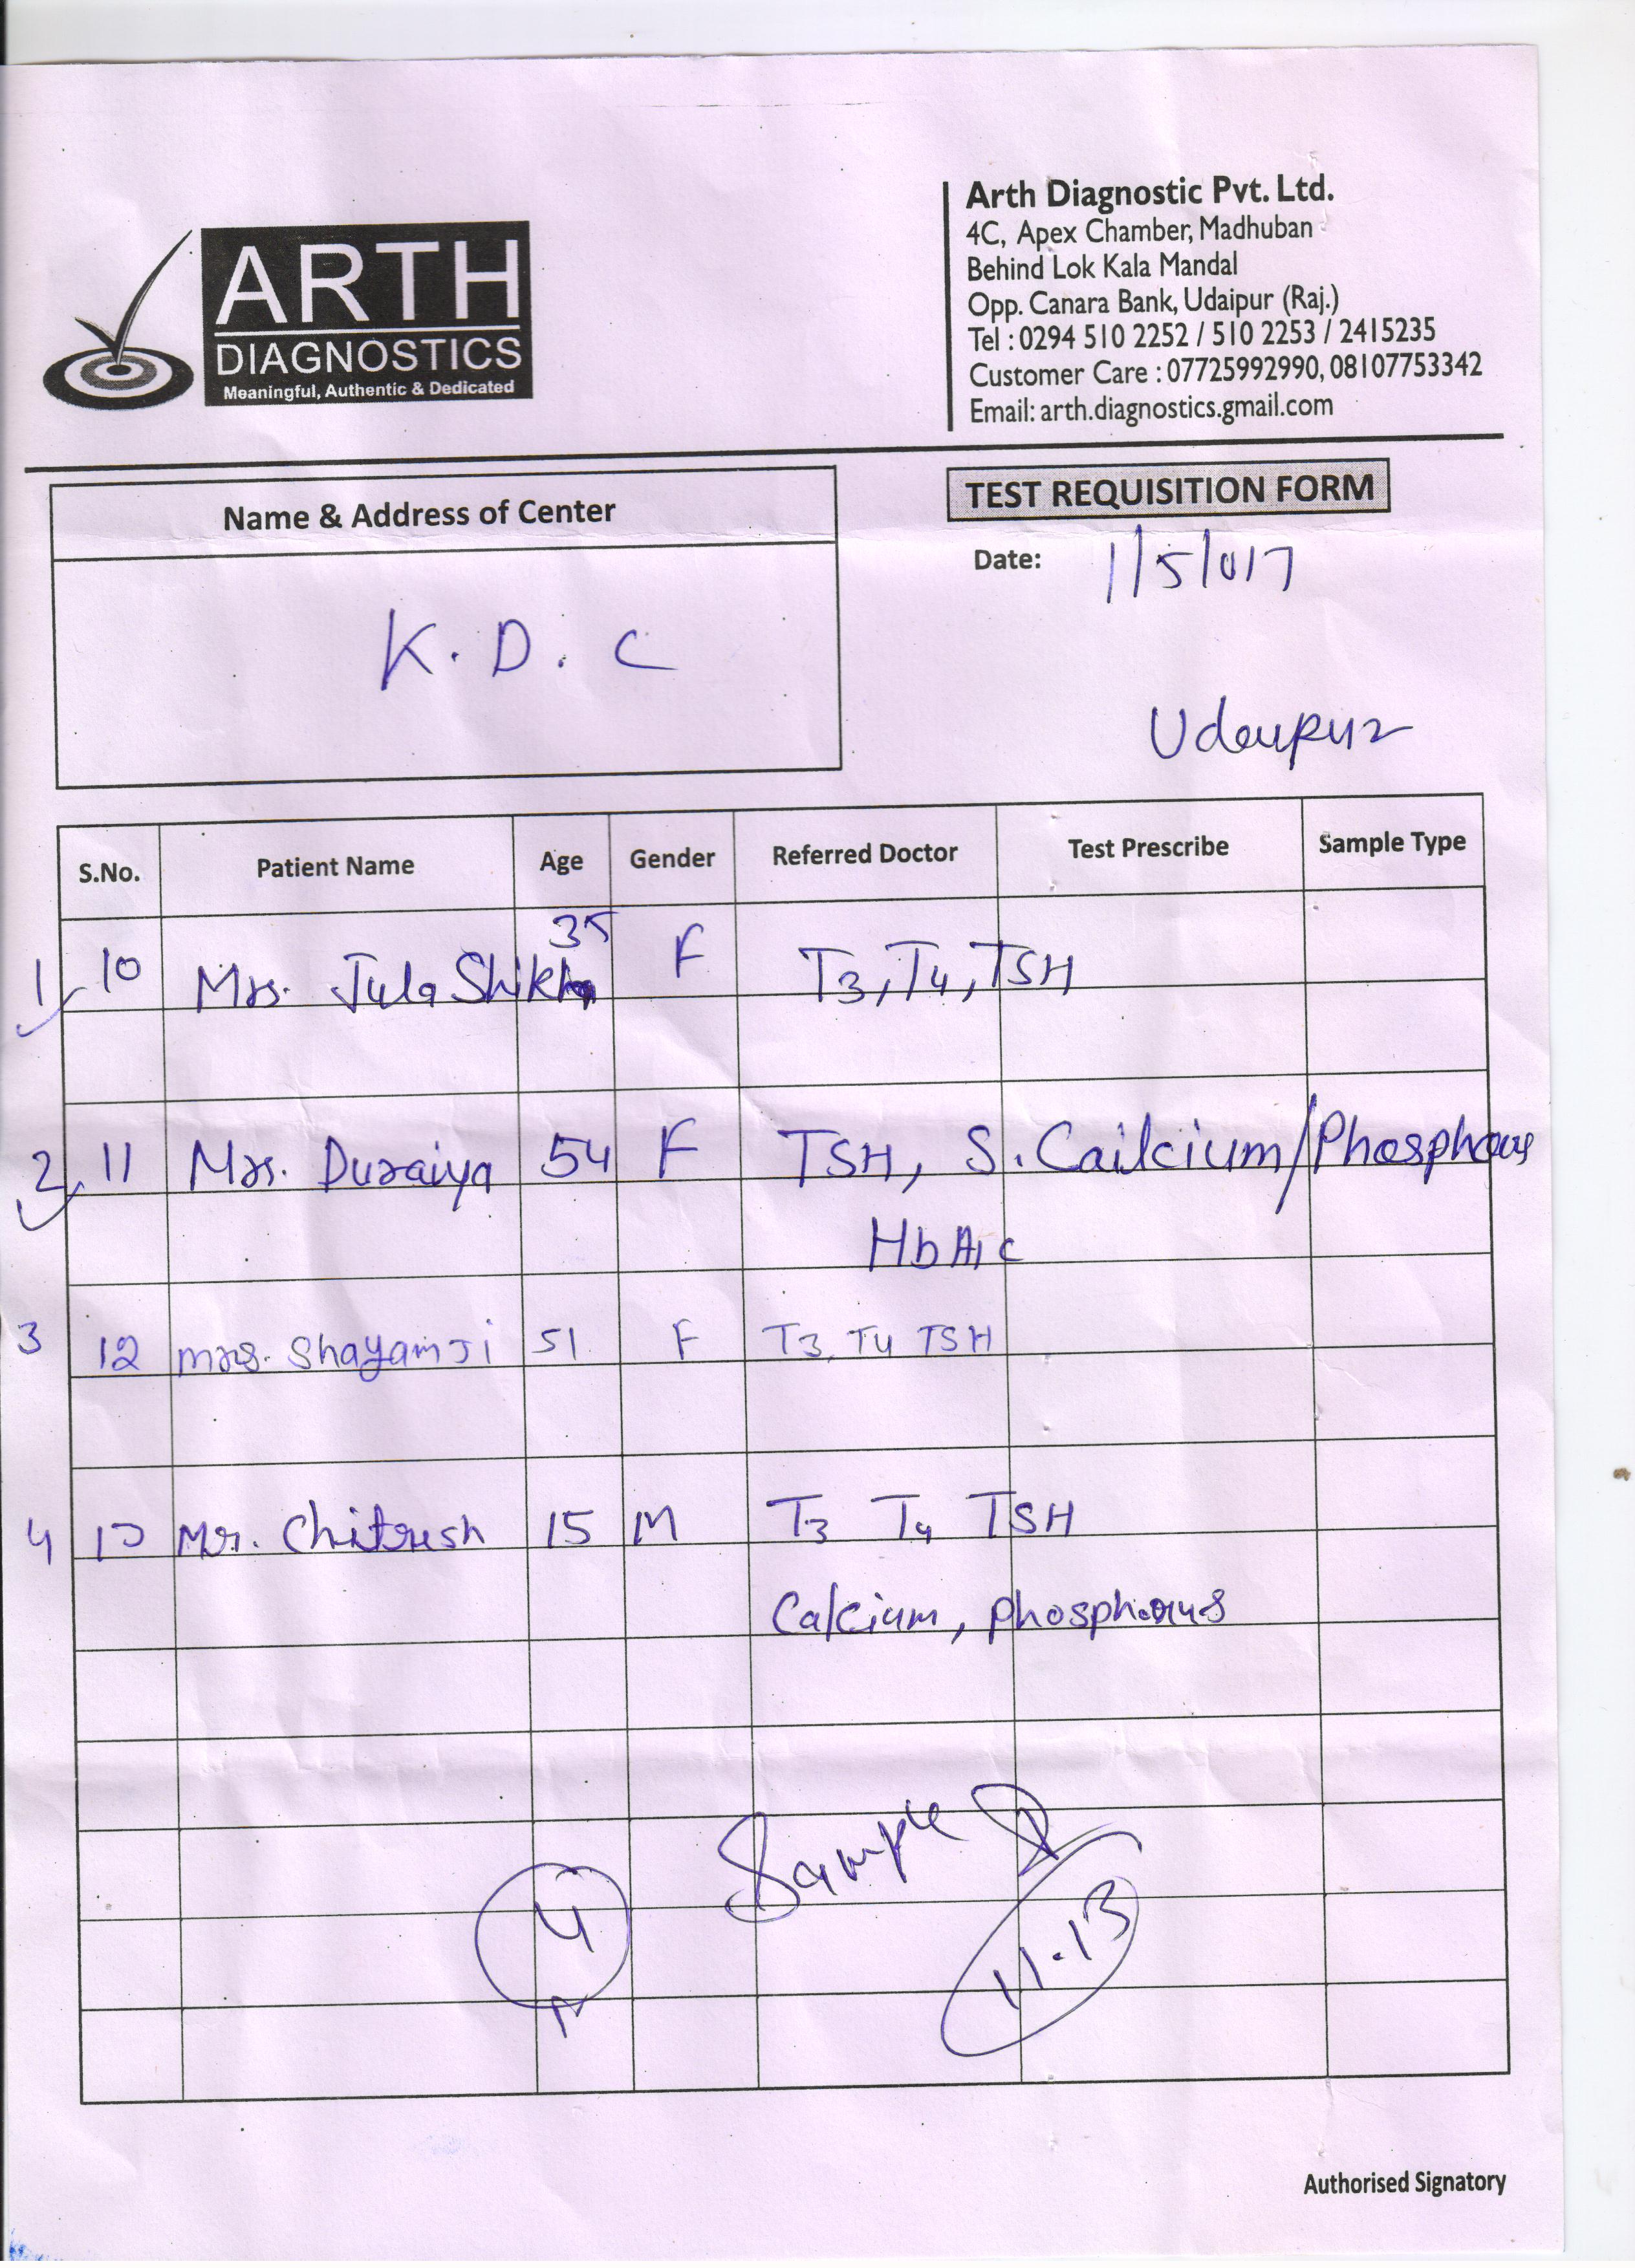 ARTH
DIAGNOSTICS
Meaningful, Authentic & Dedicated
Arth Diagnostic Pvt. Ltd.
4C, Apex Chamber, Madhuban
Behind Lok Kala Mandal
Opp. Canara Bank, Udaipur (Raj.)
Tel : 0294 510 2252 / 510 2253 / 2415235
Customer Care : 07725992990, 08107753342
Email: arth.diagnostics.gmail.com
Name & Address of Center
K. D. C
TEST REQUISITION FORM
Date: 1/5/017
Udaipur
S.No. Patient Name Age Gender Referred Doctor Test Prescribe Sample Type
1 10 Mrs. Jula Shikha 35 F T3, T4, TSH
2 11 Mrs. Duraiya 54 F TSH, S. Cailcium/Phosphorus
HbA1c
3 12 mrs. Shayamji 51 F T3, T4 TSH
4 13 Mr. Chitresh 15 M T3 T4 TSH
Calcium, phosphorus
4
Sample
11.13
Authorised Signatory